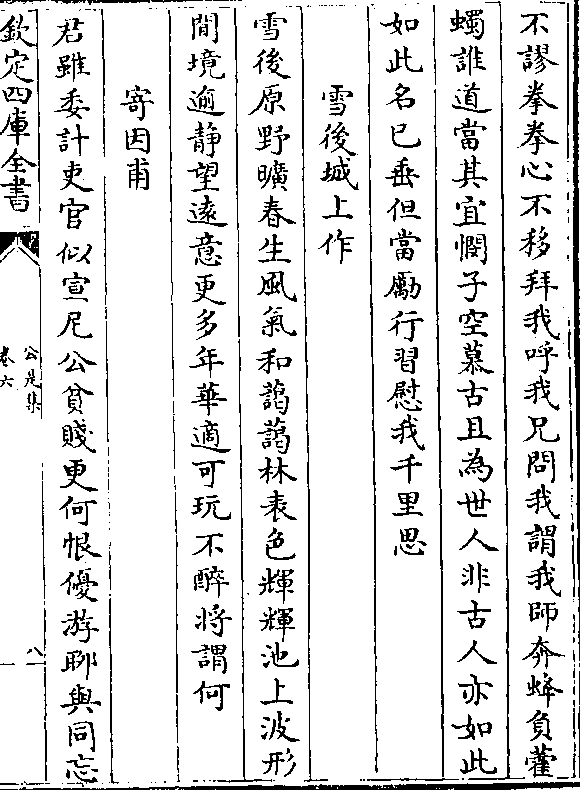 不謬拳拳心不移拜我呼我兄問我謂我師奔蜂負藿
蠋誰道當其宜憫子空慕古且為世人非古人亦如此
如此名已垂但當勵行習慰我千里思
雪後城上作
雪後原野曠春生風氣和藹藹林表色輝輝池上波形
閒境逾静望遠意更多年華適可玩不醉將謂何
寄因甫
君雖委計吏官似宣尼公貧賤更何恨優游聊與同忘
欽定四庫全書
公是集
卷六
八